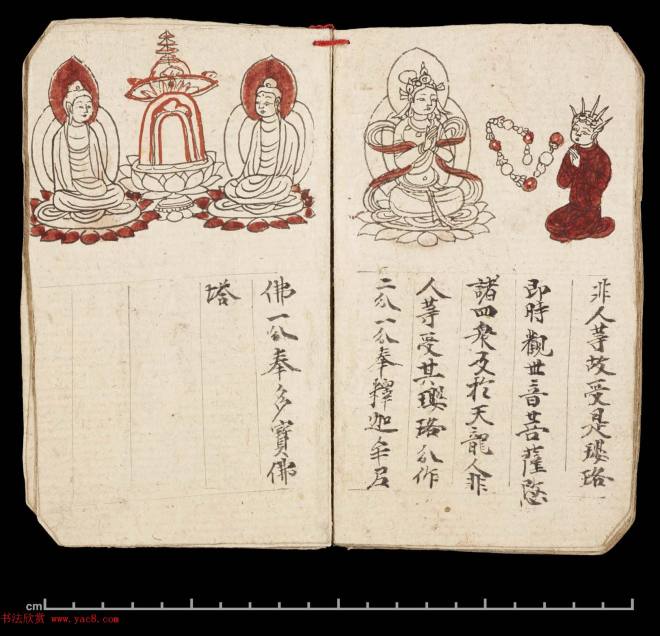 非人等故受是瓔珞
即時觀世音菩薩愍
諸四衆及於天龍人非
人等受其瓔珞分作
二分一分奉釋迦牟尼
佛一分奉多寶佛
塔
cm
书法欣赏 www.yac8.com